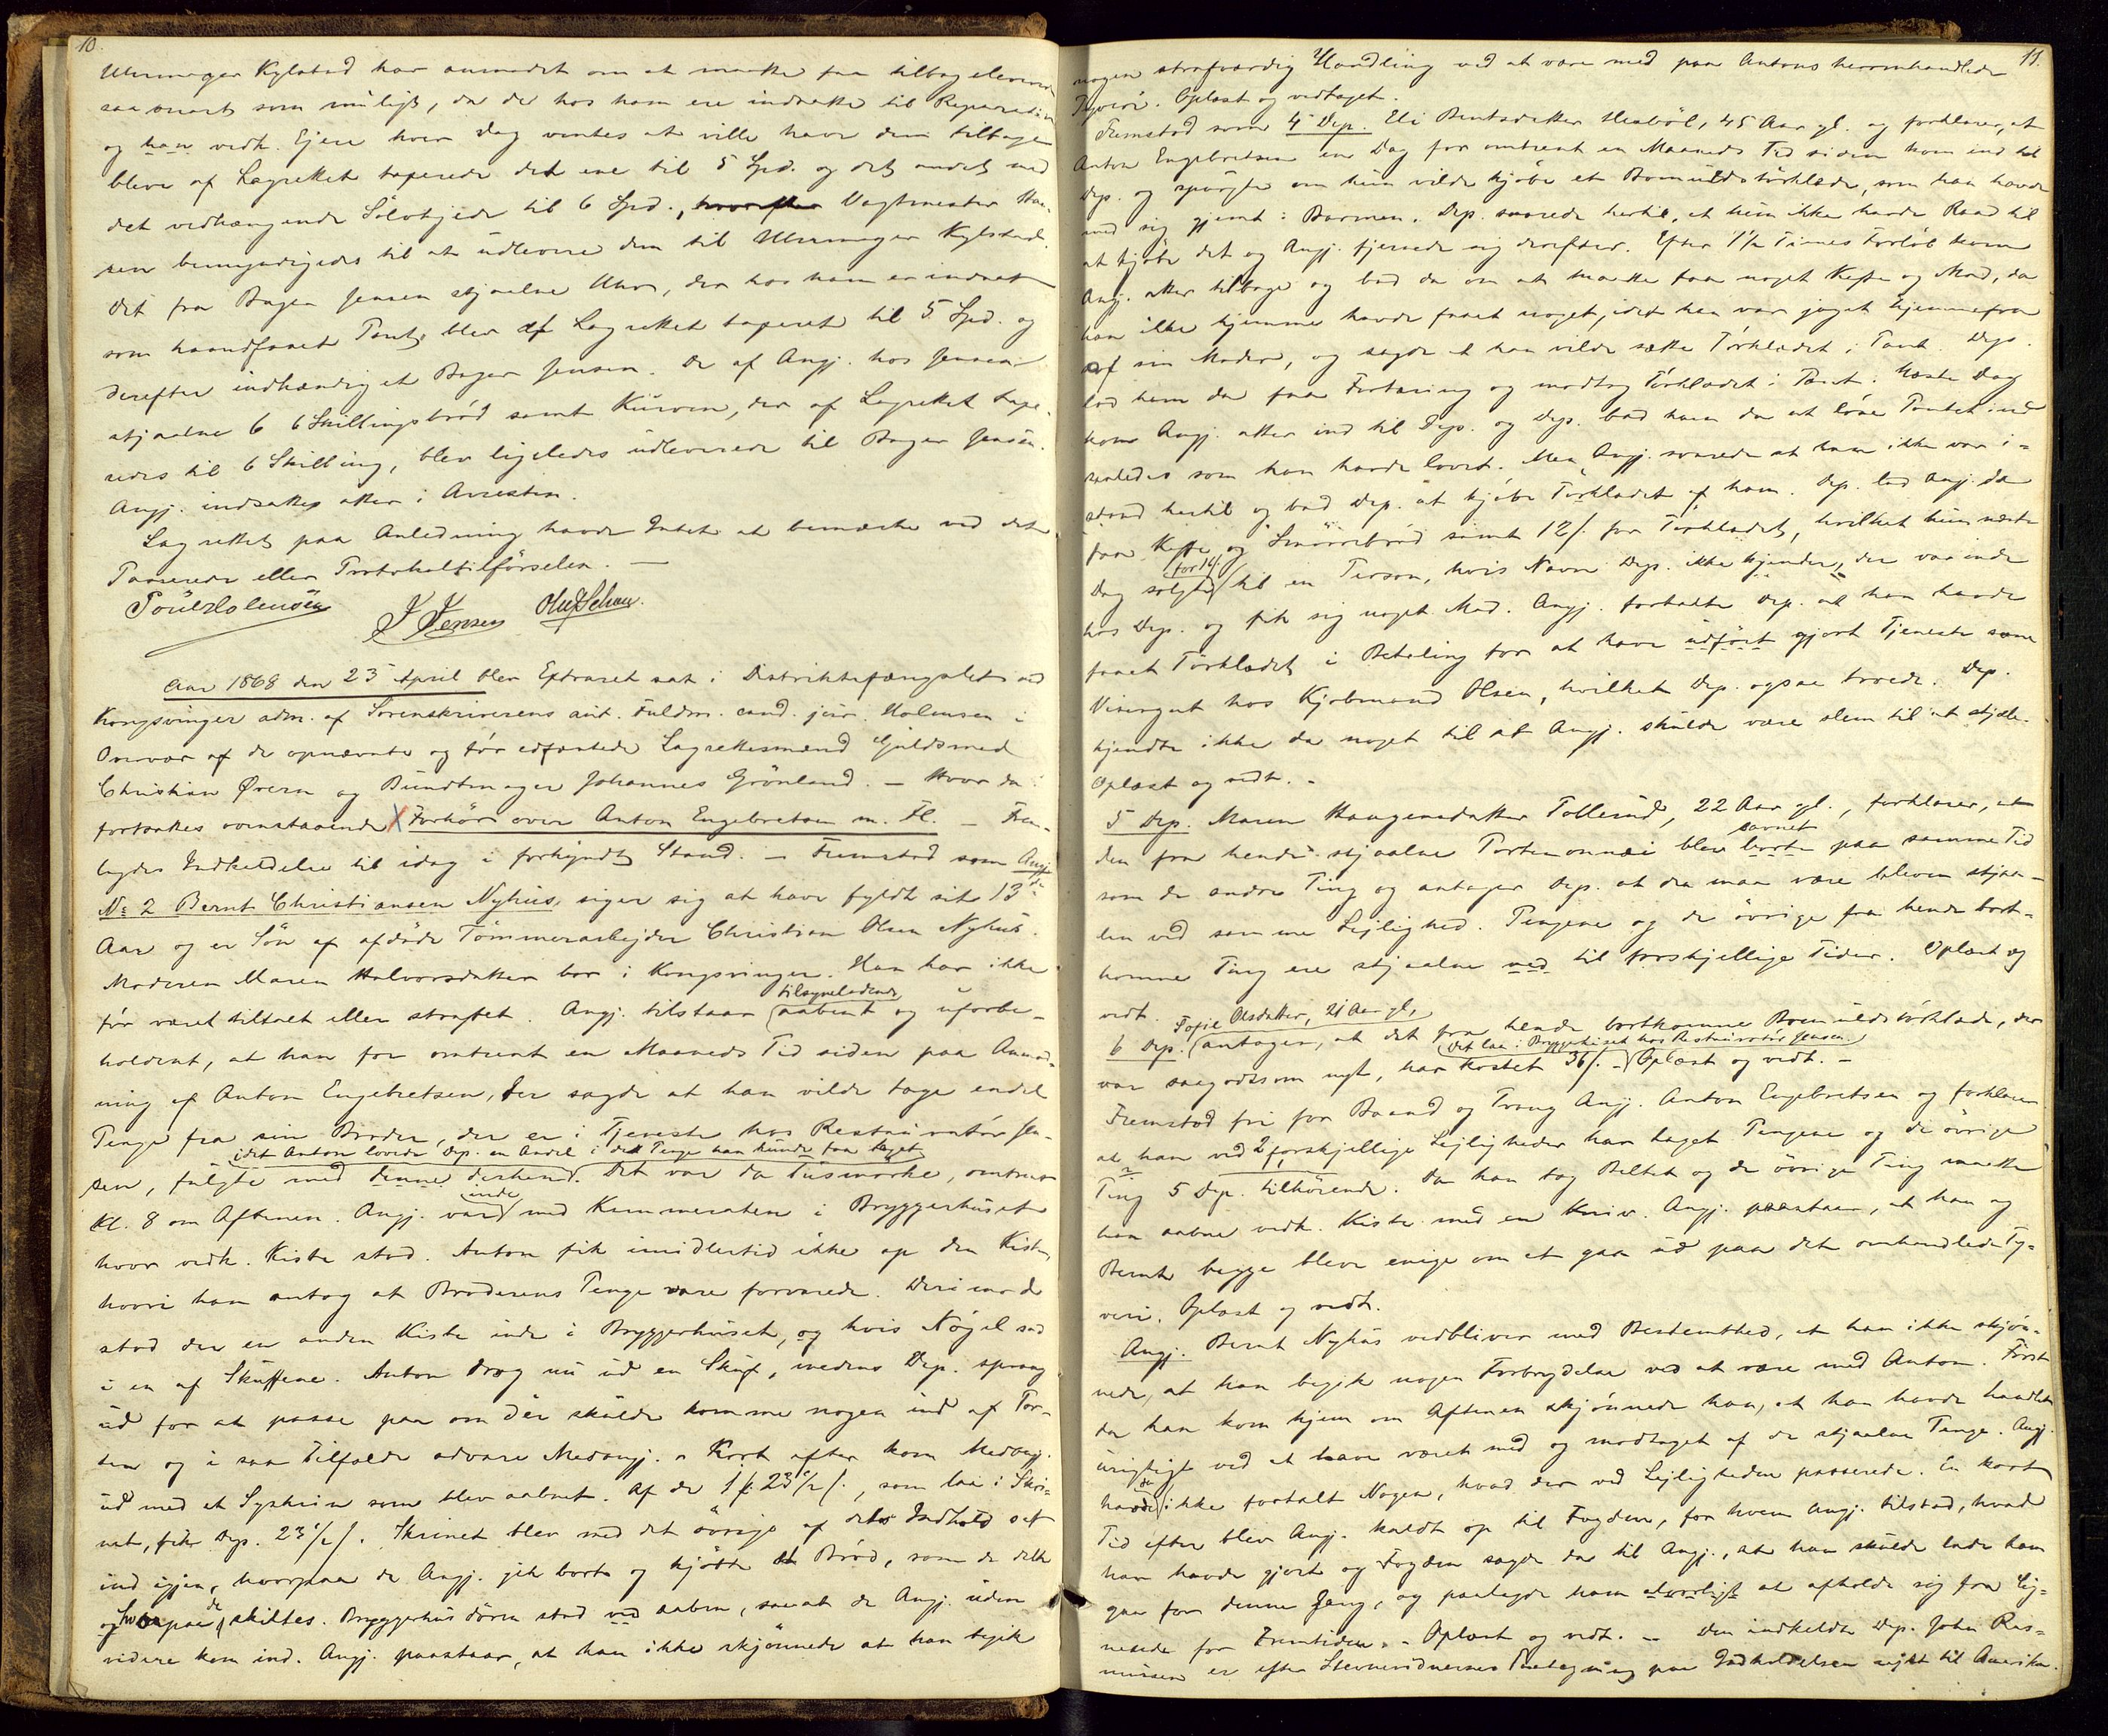 10.
Uhrmager Kylstad har anmodet om at maatte faa tilbageleverede
saa snart som muligt, da de hos ham ere indsatte til Reparation
og han vedk. Ejere hver Dag ventes at ville have dem tilbage
bleve af Lagrettet taxerede det ene til 5 Spd. og det andet med
det vedhængende Sölvkjede til 6 Spd., hvorefter Vagtmester Han-
sen bemyndigedes til at udlevere dem til Uhrmager Kylstad.
Det fra Bager Jensen stjaalne Uhr, der hos ham er indsat
som haandfaaet Pant, blev af Lagrettet taxeret til 5 Spd. og
derefter indhændiget Bager Jensen. De af Angj. hos Jensen
stjaalne 6 6 Skillingsbröd samt Kurven, der af Lagrettet taxe-
redes til 6 Skilling, blev ligeledes udleverede til Bager Jensen.
Angj. indsattes atter i Arresten.
Lagrettet paa Anledning havde Intet at bemærke ved det
Passerede eller Protokoltilförselen. —
Poul Holmsen J Jensen Olu Schou.
Aar 1868 den 23 April blev Extraret sat i Distriktsfængslet ved
Kongsvinger adm. af Sorenskriverens aut. Fuldm. cand. jur. Holmsen i
Overvær af de opnævnte og för edfæstede Lagrettesmænd Guldsmed
Christian Ørern og Bundtmager Johannes Grönland. — Hvor da
fortsattes ovenstaaende Forhör over Anton Engebretsen m. Fl. — Frem-
lagdes Indkaldelse til idag i forkyndt Stand. — Fremstod som Angj.
No 2 Bernt Christiansen Nyhus, siger sig at have fyldt sit 13de
Aar og er Sön af afdöde Tömmerarbejder Christian Olsen Nyhus.
Moderen Maren Halvorsdatter bor i Kongsvinger. Han har ikke
för været tiltalt eller straffet. Angj. tilstaar tilsyneladende aabent og uforbe-
holdent, at han for omtrent en Maaneds Tid siden paa Anmod-
ning af Anton Engebretsen, der sagde at han vilde tage endel
Penge fra sin Broder, der er i Tjeneste hos Restauratör Jen-
idet Anton lovede Dep. en Andel i de Penge han kunde faa taget
sen, fulgte med denne derhen. Det var da tusmörke, omtrent
Kl. 8 om Aftenen. Angj. var inde med Kammeraten i Bryggerhuset
hvor vedk. Kiste stod. Anton fik imidlertid ikke op den Kiste,
hvori han antog at Broderens Penge vare forvarede. Derimod
stod der en anden Kiste inde i Bryggerhuset, og hvis Nögel sad
i en af Skufferne. Anton drog nu ud en Skuf, medens Dep. sprang
ud for at passe paa om der skulde komme nogen ind af Por-
ten og i saa Tilfælde advare Medangj. — Kort efter kom Medangj.
ud med et Syskrin som blev aabnet. Af de 1 ß 23½ ß., som laa i Skri-
net, fik Dep. 23½ ß. Skrinet blev med det övrige af dets Indhold sat
ind igjen, hvorpaa de Angj. gik bort og kjöbte et Bröd, som de delte
og hvorpaa de skiltes. Bryggerhusdören stod ved aaben, saa at de Angj. uden
videre kom ind. Angj. paastaar, at han ikke skjönnede at han begik
11.
nogen strafværdig Handling ved at være med paa Antons heromhandlede
Tyveri. Oplæst og vedtaget.
Fremstod som 4 Dep. Eli Berntsdatter Hesböl, 45 Aar gl. og forklarer, at
Anton Engebretsen en Dag for omtrent en Maaneds Tid siden kom ind til
Dep. og spurgte om hun vilde kjöbe et Bomuldstörklæde, som han havde
med sig gjemt i Barmen. Dep. svarede hertil, at hun ikke havde Raad til
at kjöbe det og Angj. fjernede sig derefter. Efter 1½ Times Forlöb kom
Angj. atter tilbage og bad da om at maatte faa noget Kaffe og Mad, da
han ikke hjemme havde faaet noget, idet han var jaget hjemmefra
af sin Moder, og sagde at han vilde sætte Törklædet i Pant. Dep.
lod ham da faa Fortæring og modtog Törklædet i Pant. Næste Dag
kom Angj. atter ind til Dep. og Dep. bad ham da at löse Pantet ind
saaledes som han havde lovet. Men Angj. svarede at han ikke var i-
stand hertil og bad Dep. at kjöbe Törklædet af ham. Dep. lod Angj. da
faa Kaffe og Smörrebröd samt 12 ß. for Törklædet, hvilket hun næste
Dag solgte for 14 ß til en Person, hvis Navn Dep. ikke kjender, der var inde
hos Dep. og fik sig noget Mad. Angj. fortalte Dep. at han havde
faaet Törklædet i Betaling for at have udfört gjort Tjeneste som
Visergut hos Kjöbmand Olsen, hvilket Dep. ogsaa troede. Dep.
kjendte ikke da noget til at Angj. skulde være slem til at stjæle.
Oplæst og vedt. —
5 Dep. Maren Haagensdatter Tollerud, 22 Aar gl., forklarer, at
den fra hende stjaalne Portemonnæi blev borte savnet paa samme Tid
som de andre Ting og antager Dep. at den maa være bleven stjaa-
len ved samme Lejlighed. Pengene og de övrige fra hende bort-
komne Ting ere stjaalne ved til forskjellige Tider. Oplæst og
vedt.
6 Dep. Sofie Olsdatter, 21 Aar gl, antager, at det fra hende bortkomne Bomuldstörklæde, der
var saagodtsom nyt, har kostet 36 ß. — Det laa i Bryggerhuset hos Restauratör Jensen. Oplæst og vedt. —
Fremstod fri for Baand og Tvang Angj. Anton Engebretsen og forklarer
at han ved 2 forskjellige Lejligheder har taget Pengene og de övrige
Ting 5 Dep. tilhörende. Da han tog Beltet og de övrige Ting maatte
han aabne vedk. Kiste med en Kniv. Angj. paastaar, at han og
Bernt begge bleve enige om at gaa ud paa det omhandlede Ty-
veri. Oplæst og vedt.
Angj. Bernt Nyhus vedbliver med Bestemthed, at han ikke skjön-
nede, at han begik nogen Forbrydelse ved at være med Anton. Först
da han kom hjem om Aftenen skjönnede han, at han havde handlet
urigtigt ved at have været med og modtaget af de stjaalne Penge. Angj.
havde da ikke fortalt Nogen, hvad der ved Lejligheden passerede. En kort
Tid efter blev Angj. kaldt op til Fogden, for hvem Angj. tilstod, hvad
han havde gjort og Fogden sagde da til Angj., at han skulde lade ham
gaa for denne Gang, og paalagde ham alvorligt at afholde sig fra Lig-
nende for Fremtiden. — Oplæst og vedt. — Den indkaldte Dep. John Ras-
mussen er efter Stevnevidnernes Paategning paa Indkaldelsen rejst til Amerika.